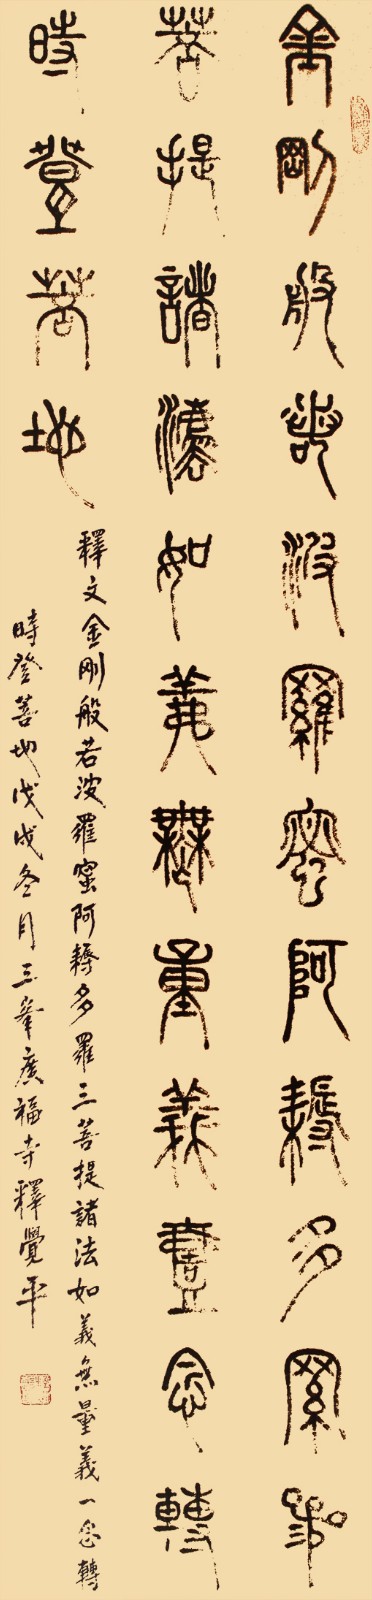 金剛般若波羅蜜阿耨多羅叁
菩提諸法如義無量義壹念轉
時登菩地
釋文金剛般若波羅蜜阿耨多羅三菩提諸法如義無量義一念轉
時登菩地戊戌冬月三峯廣福寺釋覺平